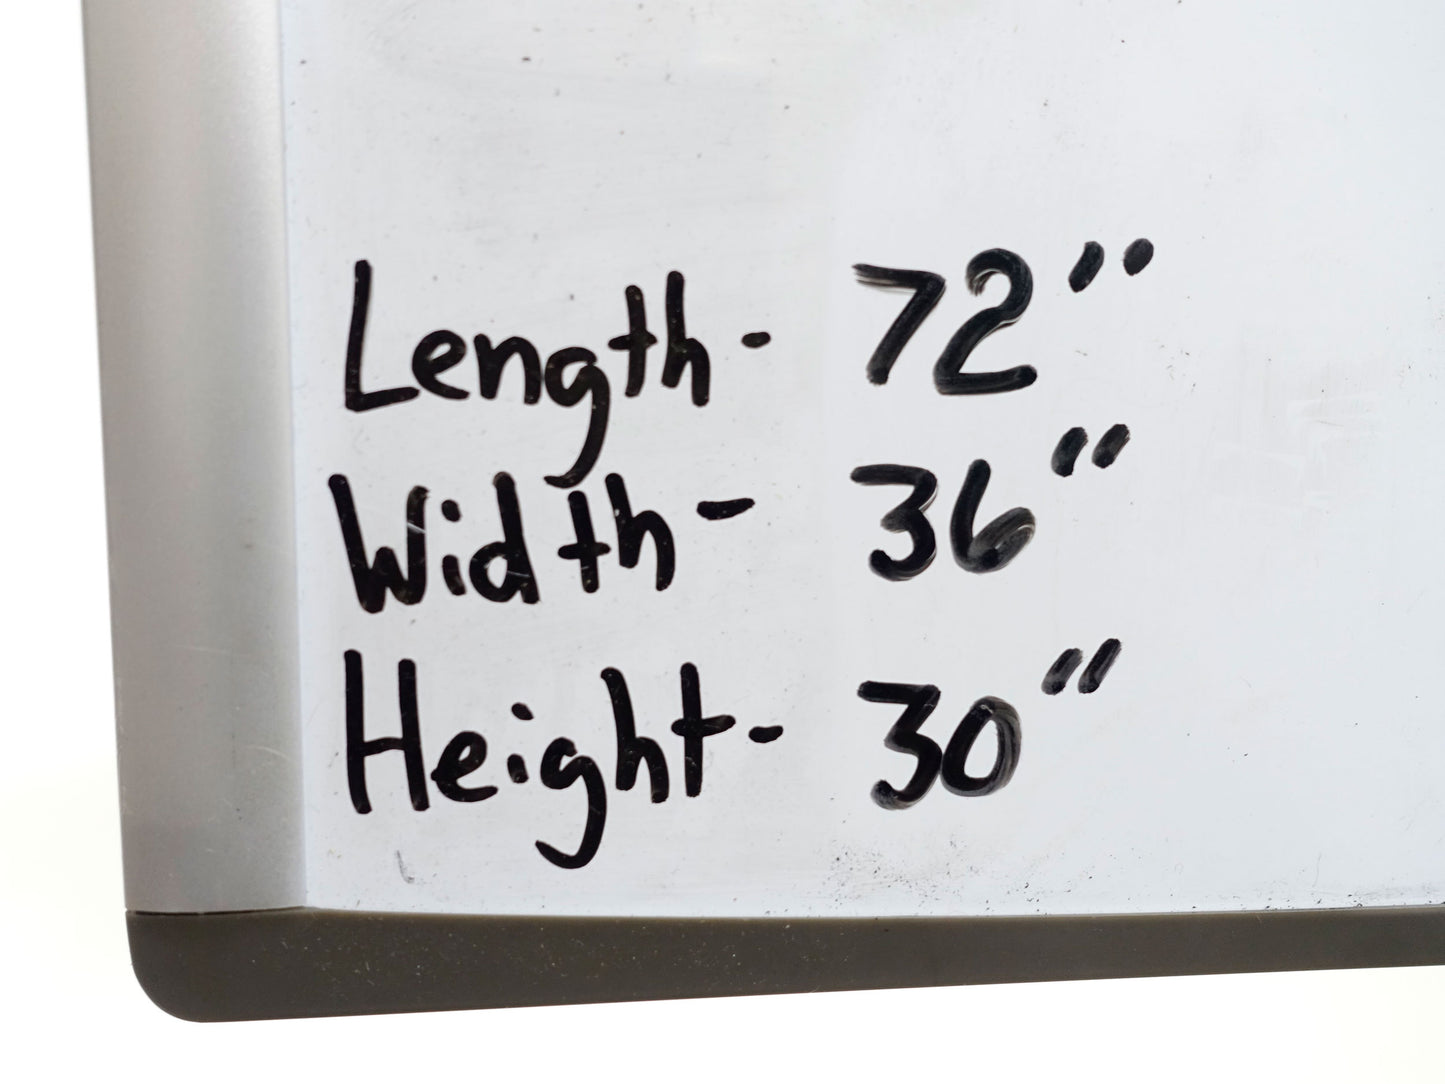 Length - 72"
Width - 36"
Height - 30"